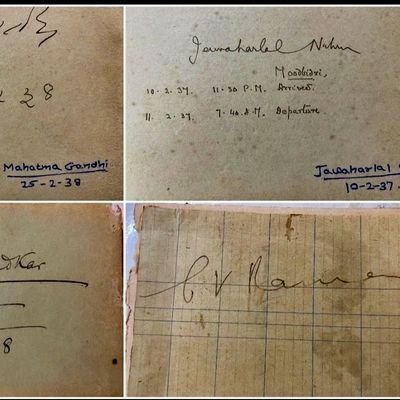 Mahatma Gandhi
25-2-38
Jawaharlal Nehru
Moodbidri,
10.2.37. 11.30 P.M. Arrived.
11.2.37, 7.40 A.M. Departure
Jawaharlal
10-2-37.
dkar
8
C. V Raman